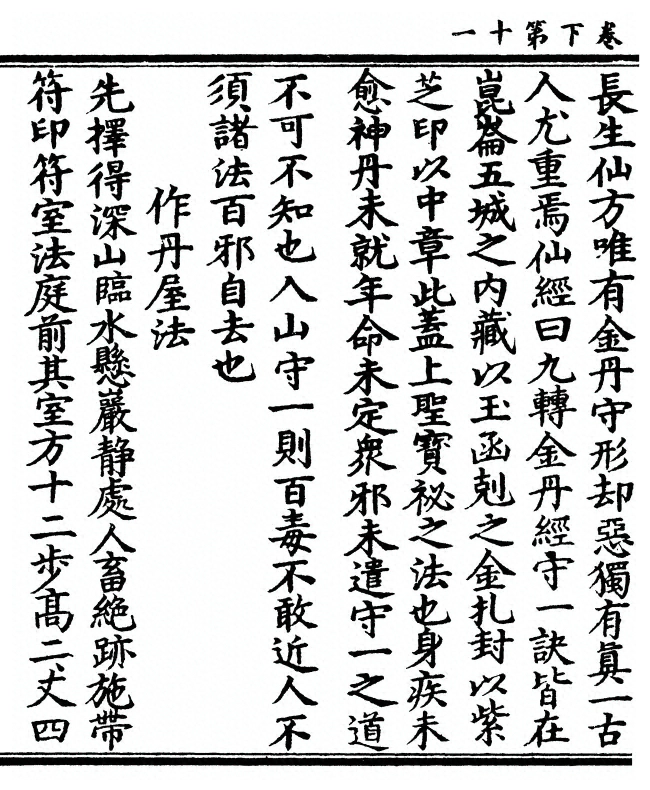 卷下第十一
長生仙方唯有金丹守形却惡獨有眞一古
人尤重焉仙經曰九轉金丹經守一訣皆在
崑崙五城之内藏以玉函剋之金扎封以紫
芝印以中章此蓋上聖寶祕之法也身疾未
愈神丹未就年命未定衆邪未遣守一之道
不可不知也入山守一則百毒不敢近人不
須諸法百邪自去也
作丹屋法
先擇得深山臨水懸巖静處人畜絶跡施帶
符印符室法庭前其室方十二步髙二丈四